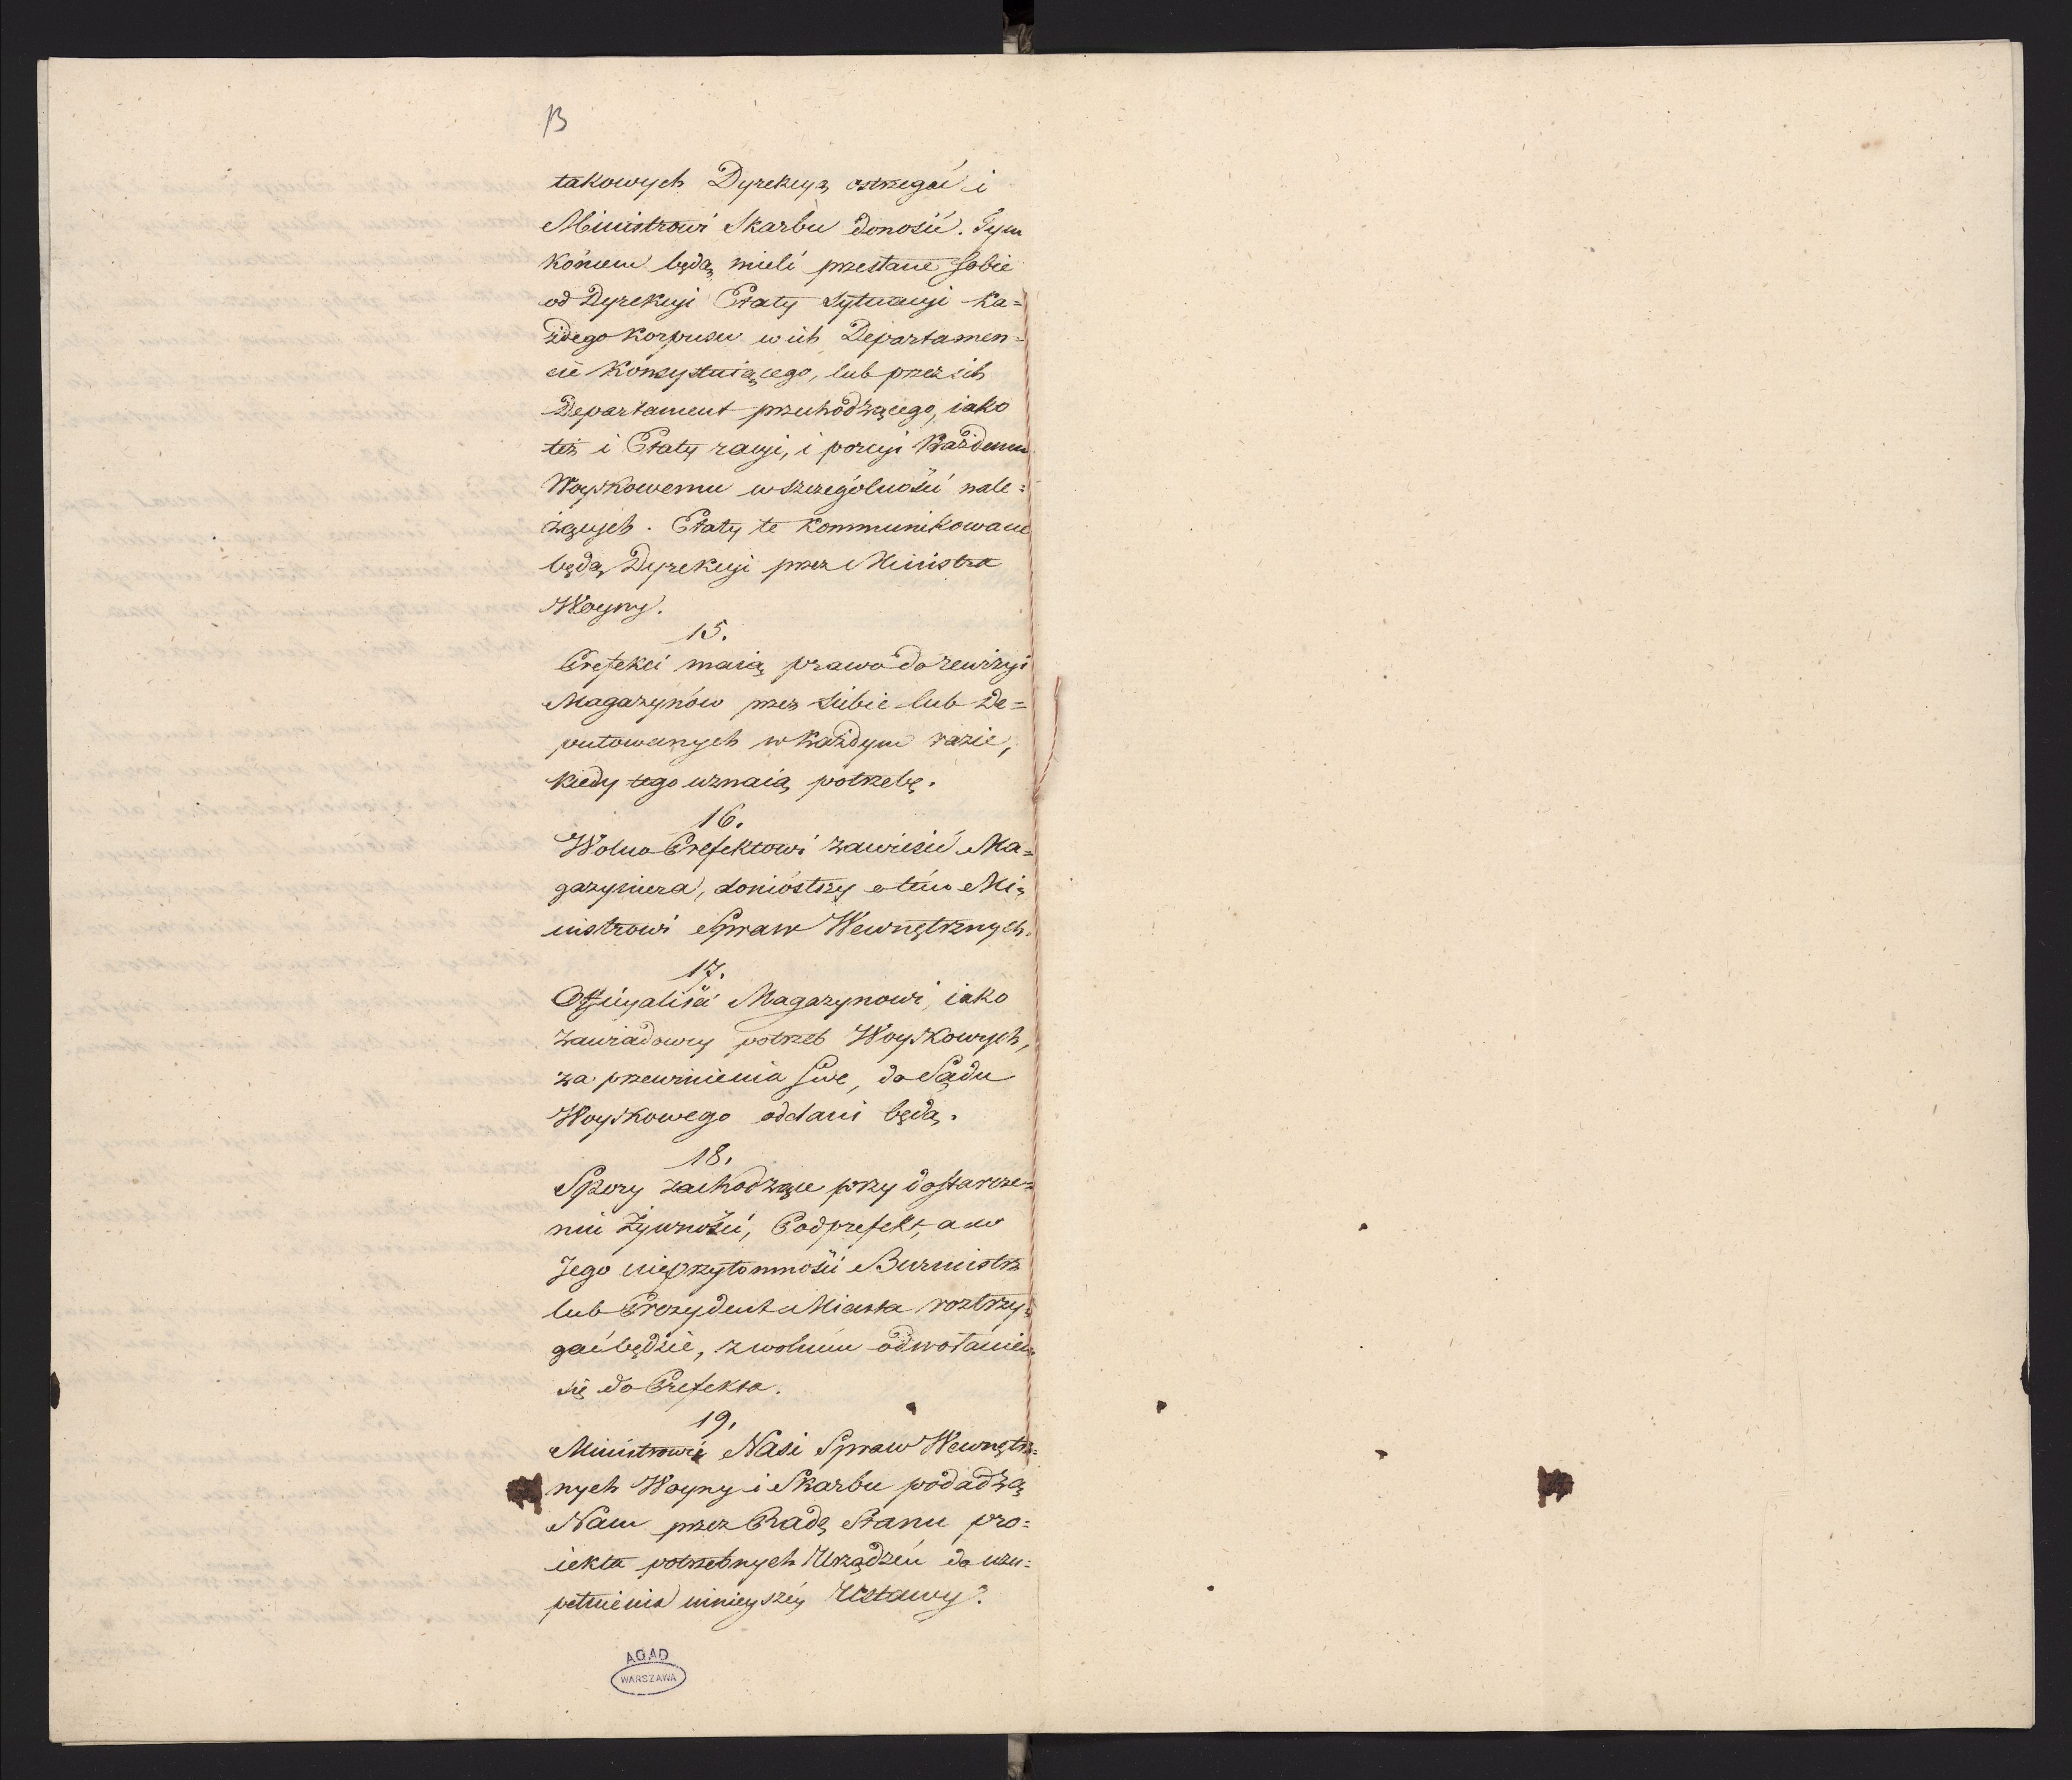 13
takowych Dyrekcyą ostrzegać i
Ministrowi Skarbu donosić. Tym
końcem będą mieli przesłane sobie
od Dyrekcyi Etaty sytuacyi ka=
żdego korpusu w ich Departamen=
cie konsystuiącego, lub przez ich
Departament przechodzącego, iako
też i Etaty racyi, i porcyi każdemu
Woyskowemu w szczególności nale=
żących. Etaty te kommunikowane
będą Dyrekcyi przez Ministra
Woyny.
15.
Prefekci maią prawo do rewizyi
Magazynów przez siebie lub De=
putowanych w każdym razie,
kiedy tego uznaią potrzebę.
16.
Wolno Prefektowi zawiesić Ma=
gazyniera, doniósłszy o tém Mi=
nistrowi Spraw Wewnętrznych.
17.
Officyaliści Magazynowi, iako
zawiadowcy potrzeb Woyskowych,
za przewinienia swe, do Sądu
Woyskowego oddani będą.
18.
Spory zachodzące przy dostarcze=
niu żywności, Podprefekt, a w
Jego nieprzytomności Burmistrz
lub Prezydent Miasta roztrzy=
gać będzie, z wolném odwołaniem
się do Prefekta.
19.
Ministrowie Nasi Spraw Wewnętrz=
nych Woyny i Skarbu podadzą
Nam przez Radę Stanu pro=
iekta potrzebnych Urządzeń do uzu=
pełnienia ninieyszéy Ustawy.
AGAD
WARSZAWA